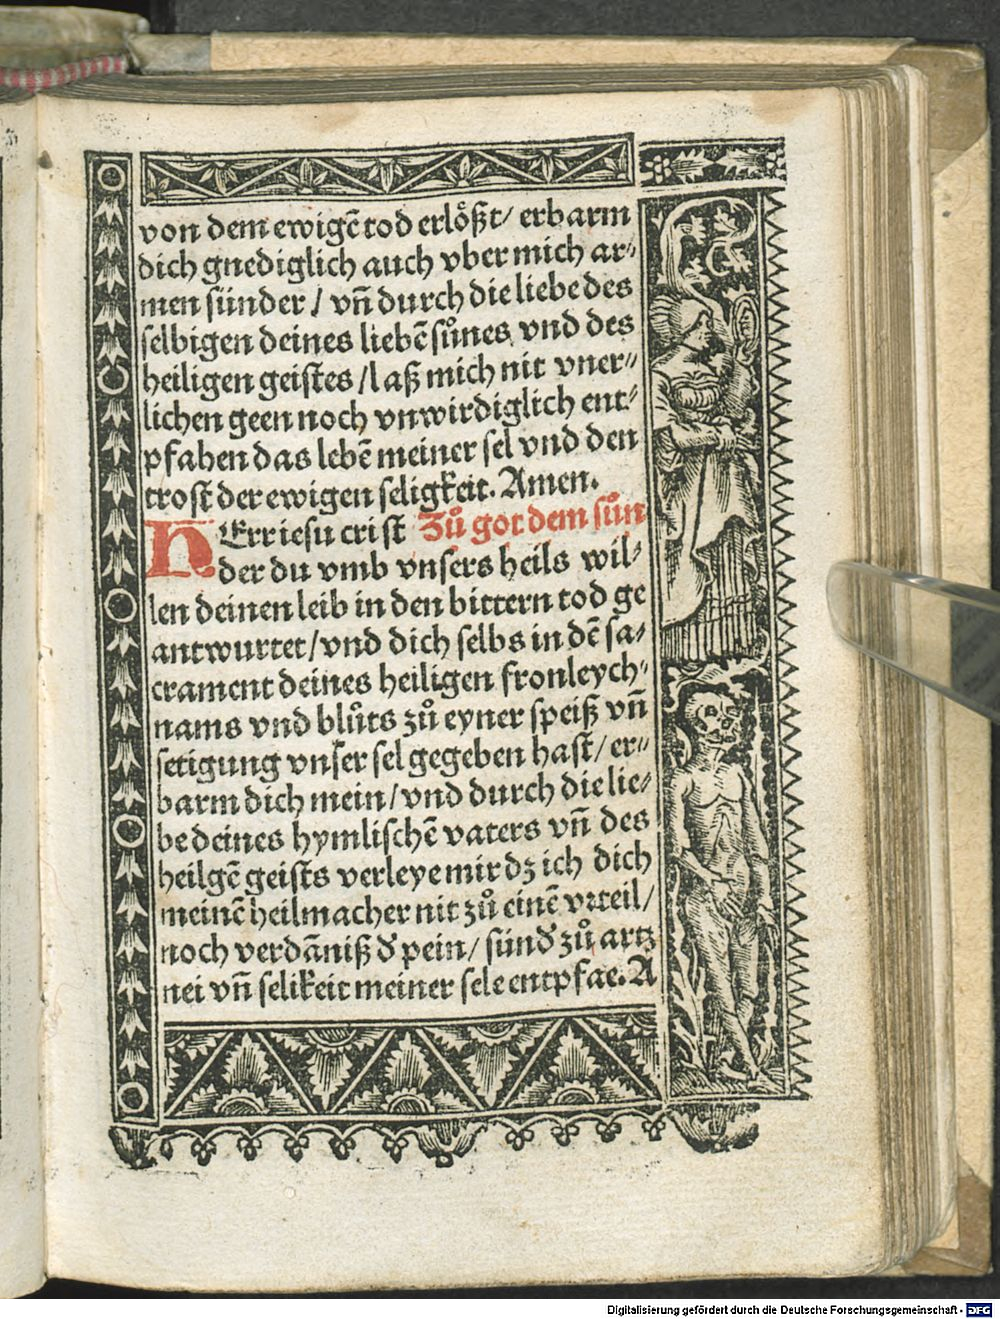 von dem ewigẽ tod erlößt/ erbarm
dich gnediglich auch vber mich ar⸗
men sünder / vñ durch die liebe des
selbigen deines liebẽ sůnes vnd des
heiligen geistes / laß mich nit vner⸗
lichen geen noch vnwirdiglich ent⸗
pfahen das lebẽ meiner sel vnd den
trost der ewigen seligkeit. Amen.
HErr iesu crist Zů got dem sůn
der du vmb vnsers heils wil⸗
len deinen leib in den bittern tod ge
antwurtet/ vnd dich selbs in dẽ sa⸗
crament deines heiligen fronleych⸗
nams vnd blůts zů eyner speiß vñ
setigung vnser sel gegeben hast/ er⸗
barm dich mein/ vnd durch die lie⸗
be deines hymlischẽ vaters vñ des
heilgẽ geists verleye mir dz ich dich
meinẽ heilmacher nit zů einẽ vrteil/
noch verdãniß đ pein/ sünđ zů artz
nei vñ selikeit meiner sele entpfae. A
Digitalisierung gefördert durch die Deutsche Forschungsgemeinschaft - DFG